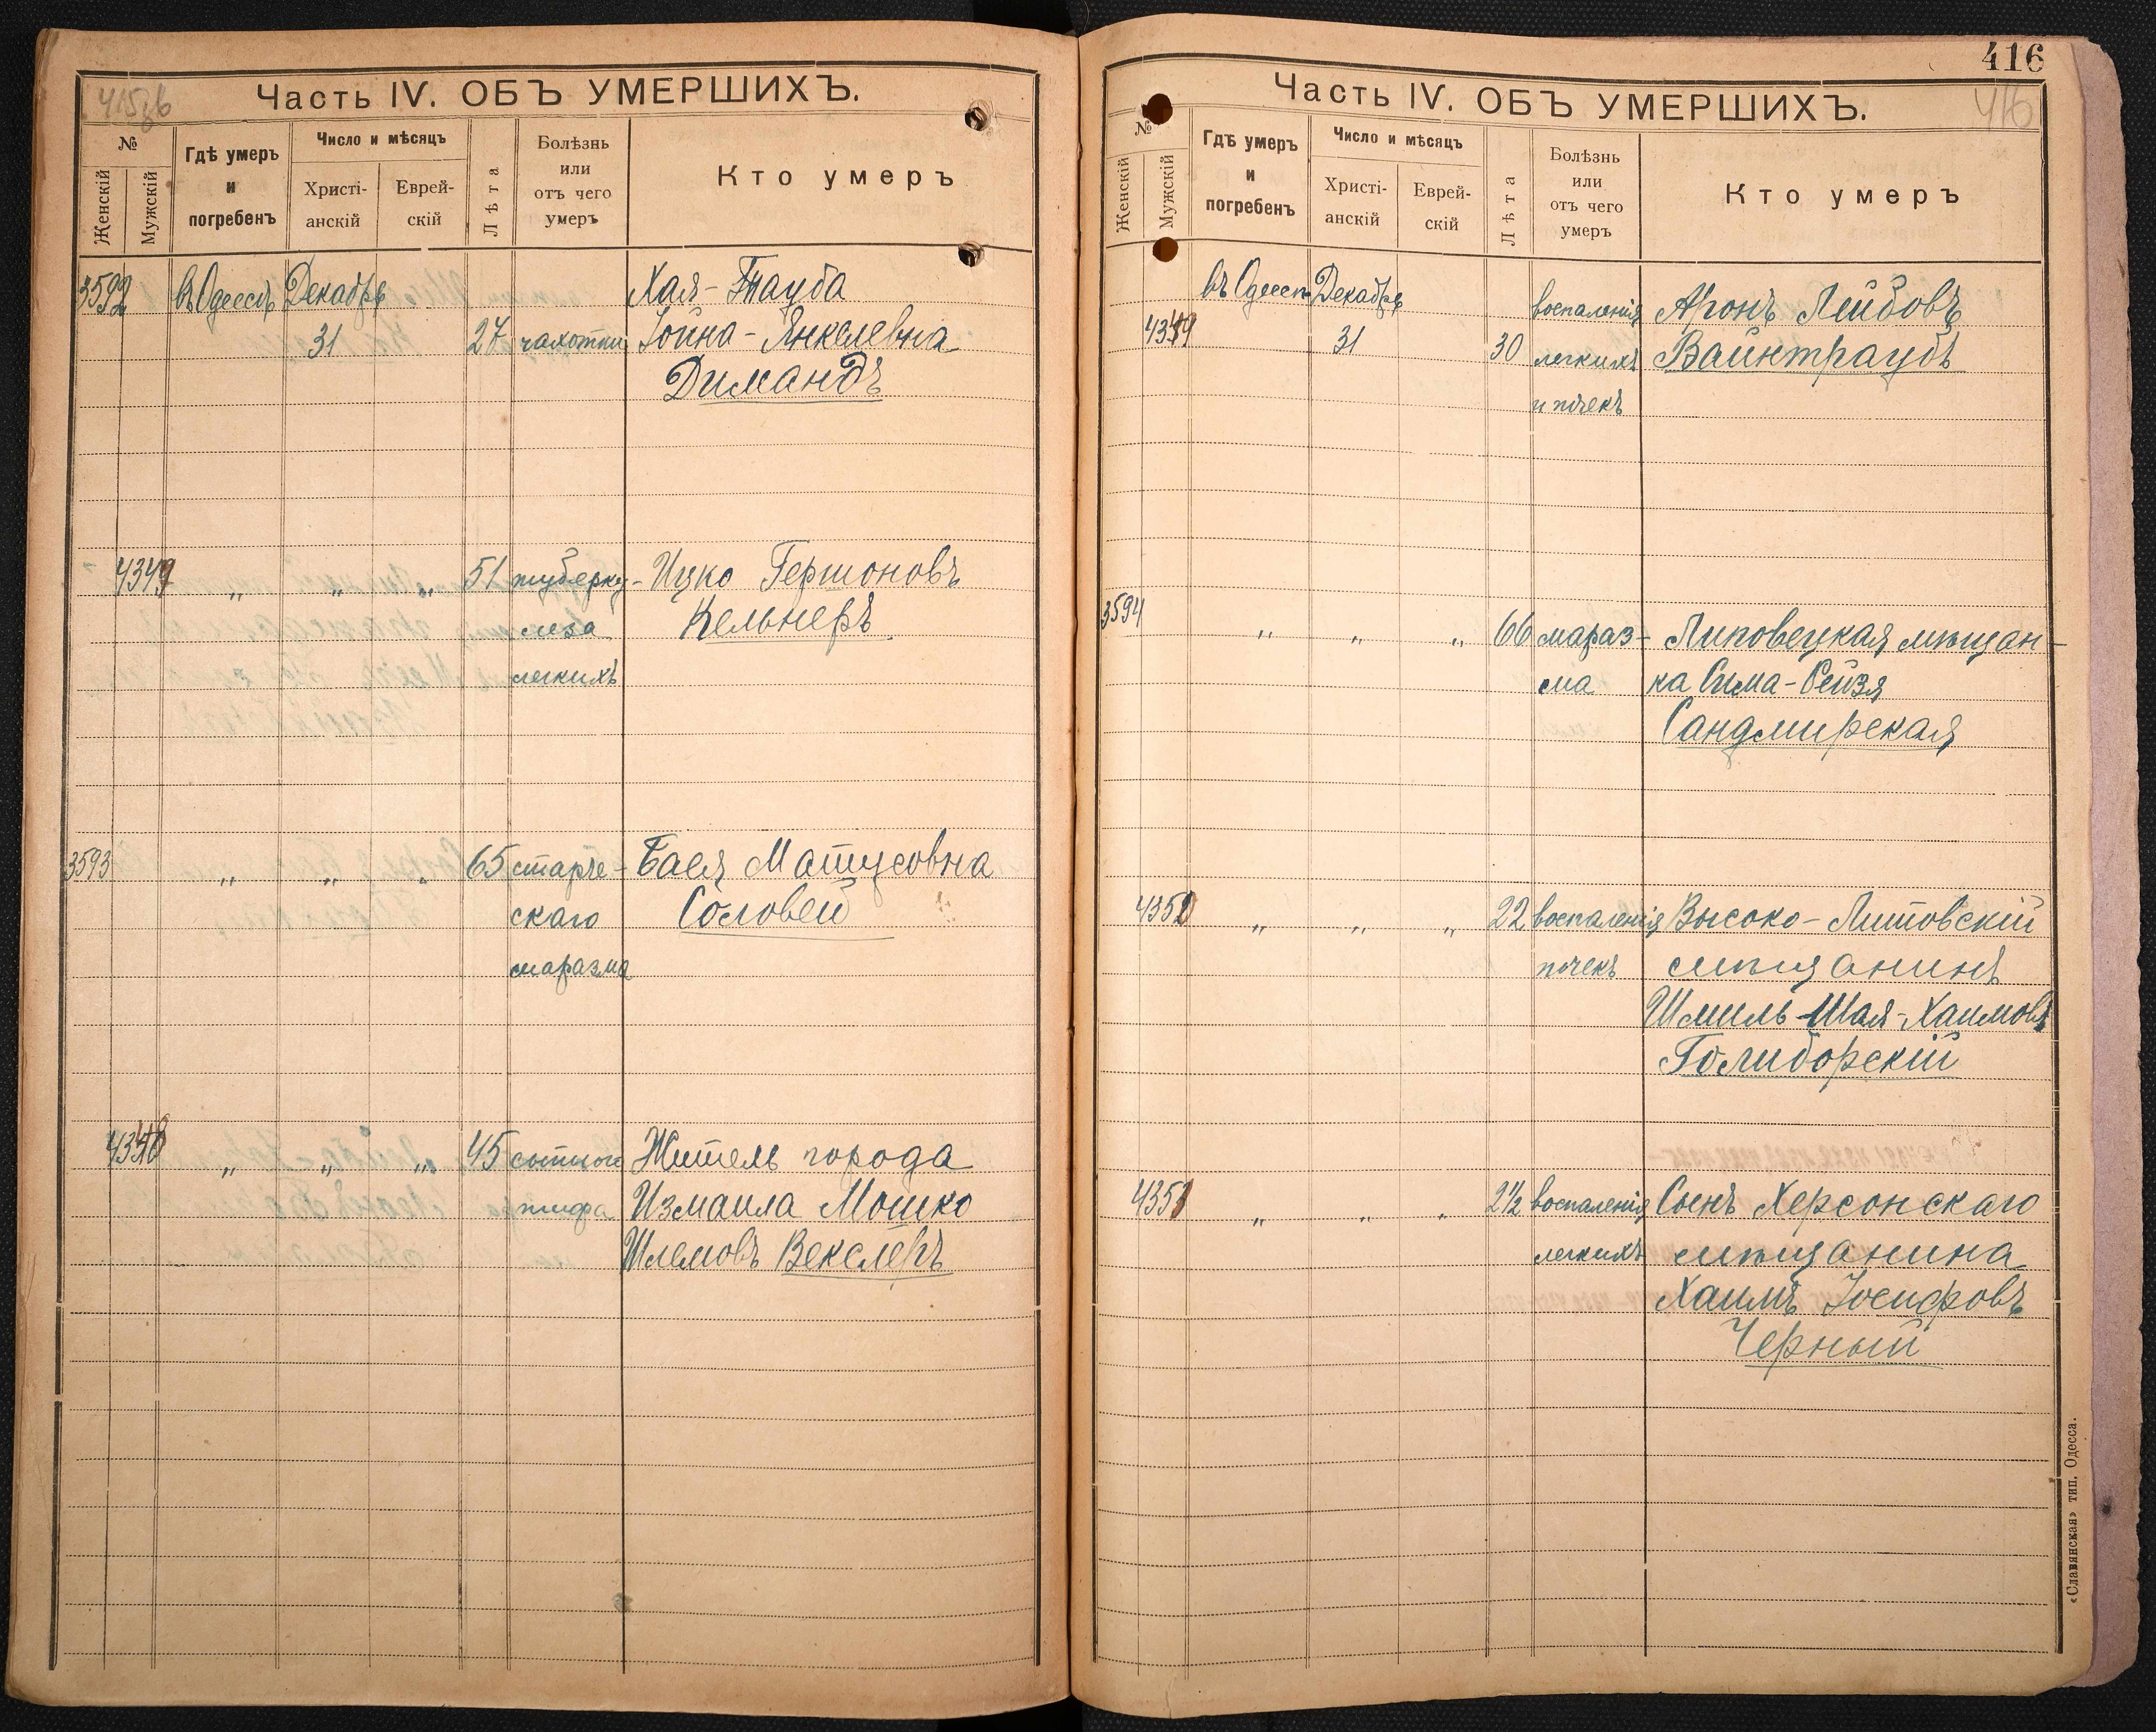 415зв
Часть IV. ОБЪ УМЕРШИХЪ.
№
Женскій
Мужскій
Гдѣ умеръ
и
погребенъ
Число и мѣсяцъ
Христі-
анскій
Еврей-
скій
Лѣта
Болѣзнь
или
отъ чего
умеръ
Кто умеръ
3592 въ Одессѣ Декабрь Хая-Тауба
31 27 чахотки Іойна-Янкелевна
Димандъ
4349 „ „ „ 51 туберку- Ицко Гершоновъ
леза Кельнеръ
легкихъ
3593 „ „ „ 65 старче- Бася Матусовна
скаго Соловей
маразма
„ „ „ 45 сыпного Житель города
тифа Измаила Мошко
Шлемовъ Векслеръ
416
416
Часть IV. ОБЪ УМЕРШИХЪ.
№
Женскій
Мужскій
Гдѣ умеръ
и
погребенъ
Число и мѣсяцъ
Христі-
анскій
Еврей-
скій
Лѣта
Болѣзнь
или
отъ чего
умеръ
Кто умеръ
въ Одессѣ Декабрь воспаленія Аронъ Лейбовъ
31 30 легкихъ Вайнтраубъ
и почекъ
3594 „ „ „ 66 мараз- Липовецкая мѣщан-
ма ка Сима-Рейзя
Сандмирская
„ „ „ 22 воспаленія Высоко-Литовскій
почекъ мѣщанинъ
Шмиль-Шая-Хаимовъ
Голиборскій
„ „ „ 2½ воспаленія Сынъ Херсонскаго
легкихъ мѣщанина
Хаимъ Іосифовъ
Черный
«Славянская» тип. Одесса.